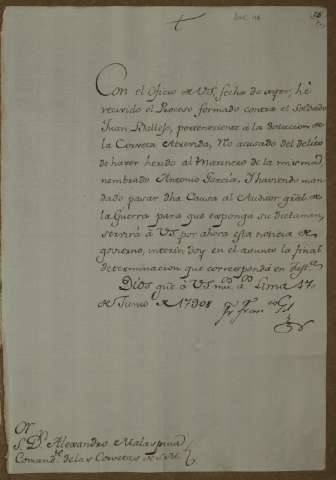 Con el Oficio de VS. fecha de ayer, hé
recivido el Proceso formado contra el Soldado
Juan Bellejo, perteneciente á la dotacion de
la Corveta Atrevida, Rό acusado del delito
de haver herido al Marinero de la misma
nombrado Antonio Garcia. Y haviendo man-
dado pasar dha Causa al Auditor gral de
la Guerra para que exponga su dictamen,
servirá á VS. por ahora esta noticia de
govierno, interin doy en el asunto la final
determinacion que corresponda en
Dios gue á VS. ms. as. Lima 17.
de Junio de 1790
Fr. Franco Gil
Or.
S. Dn. Alexandro Malaspina
Comandte. de las Corvetas de S.M.